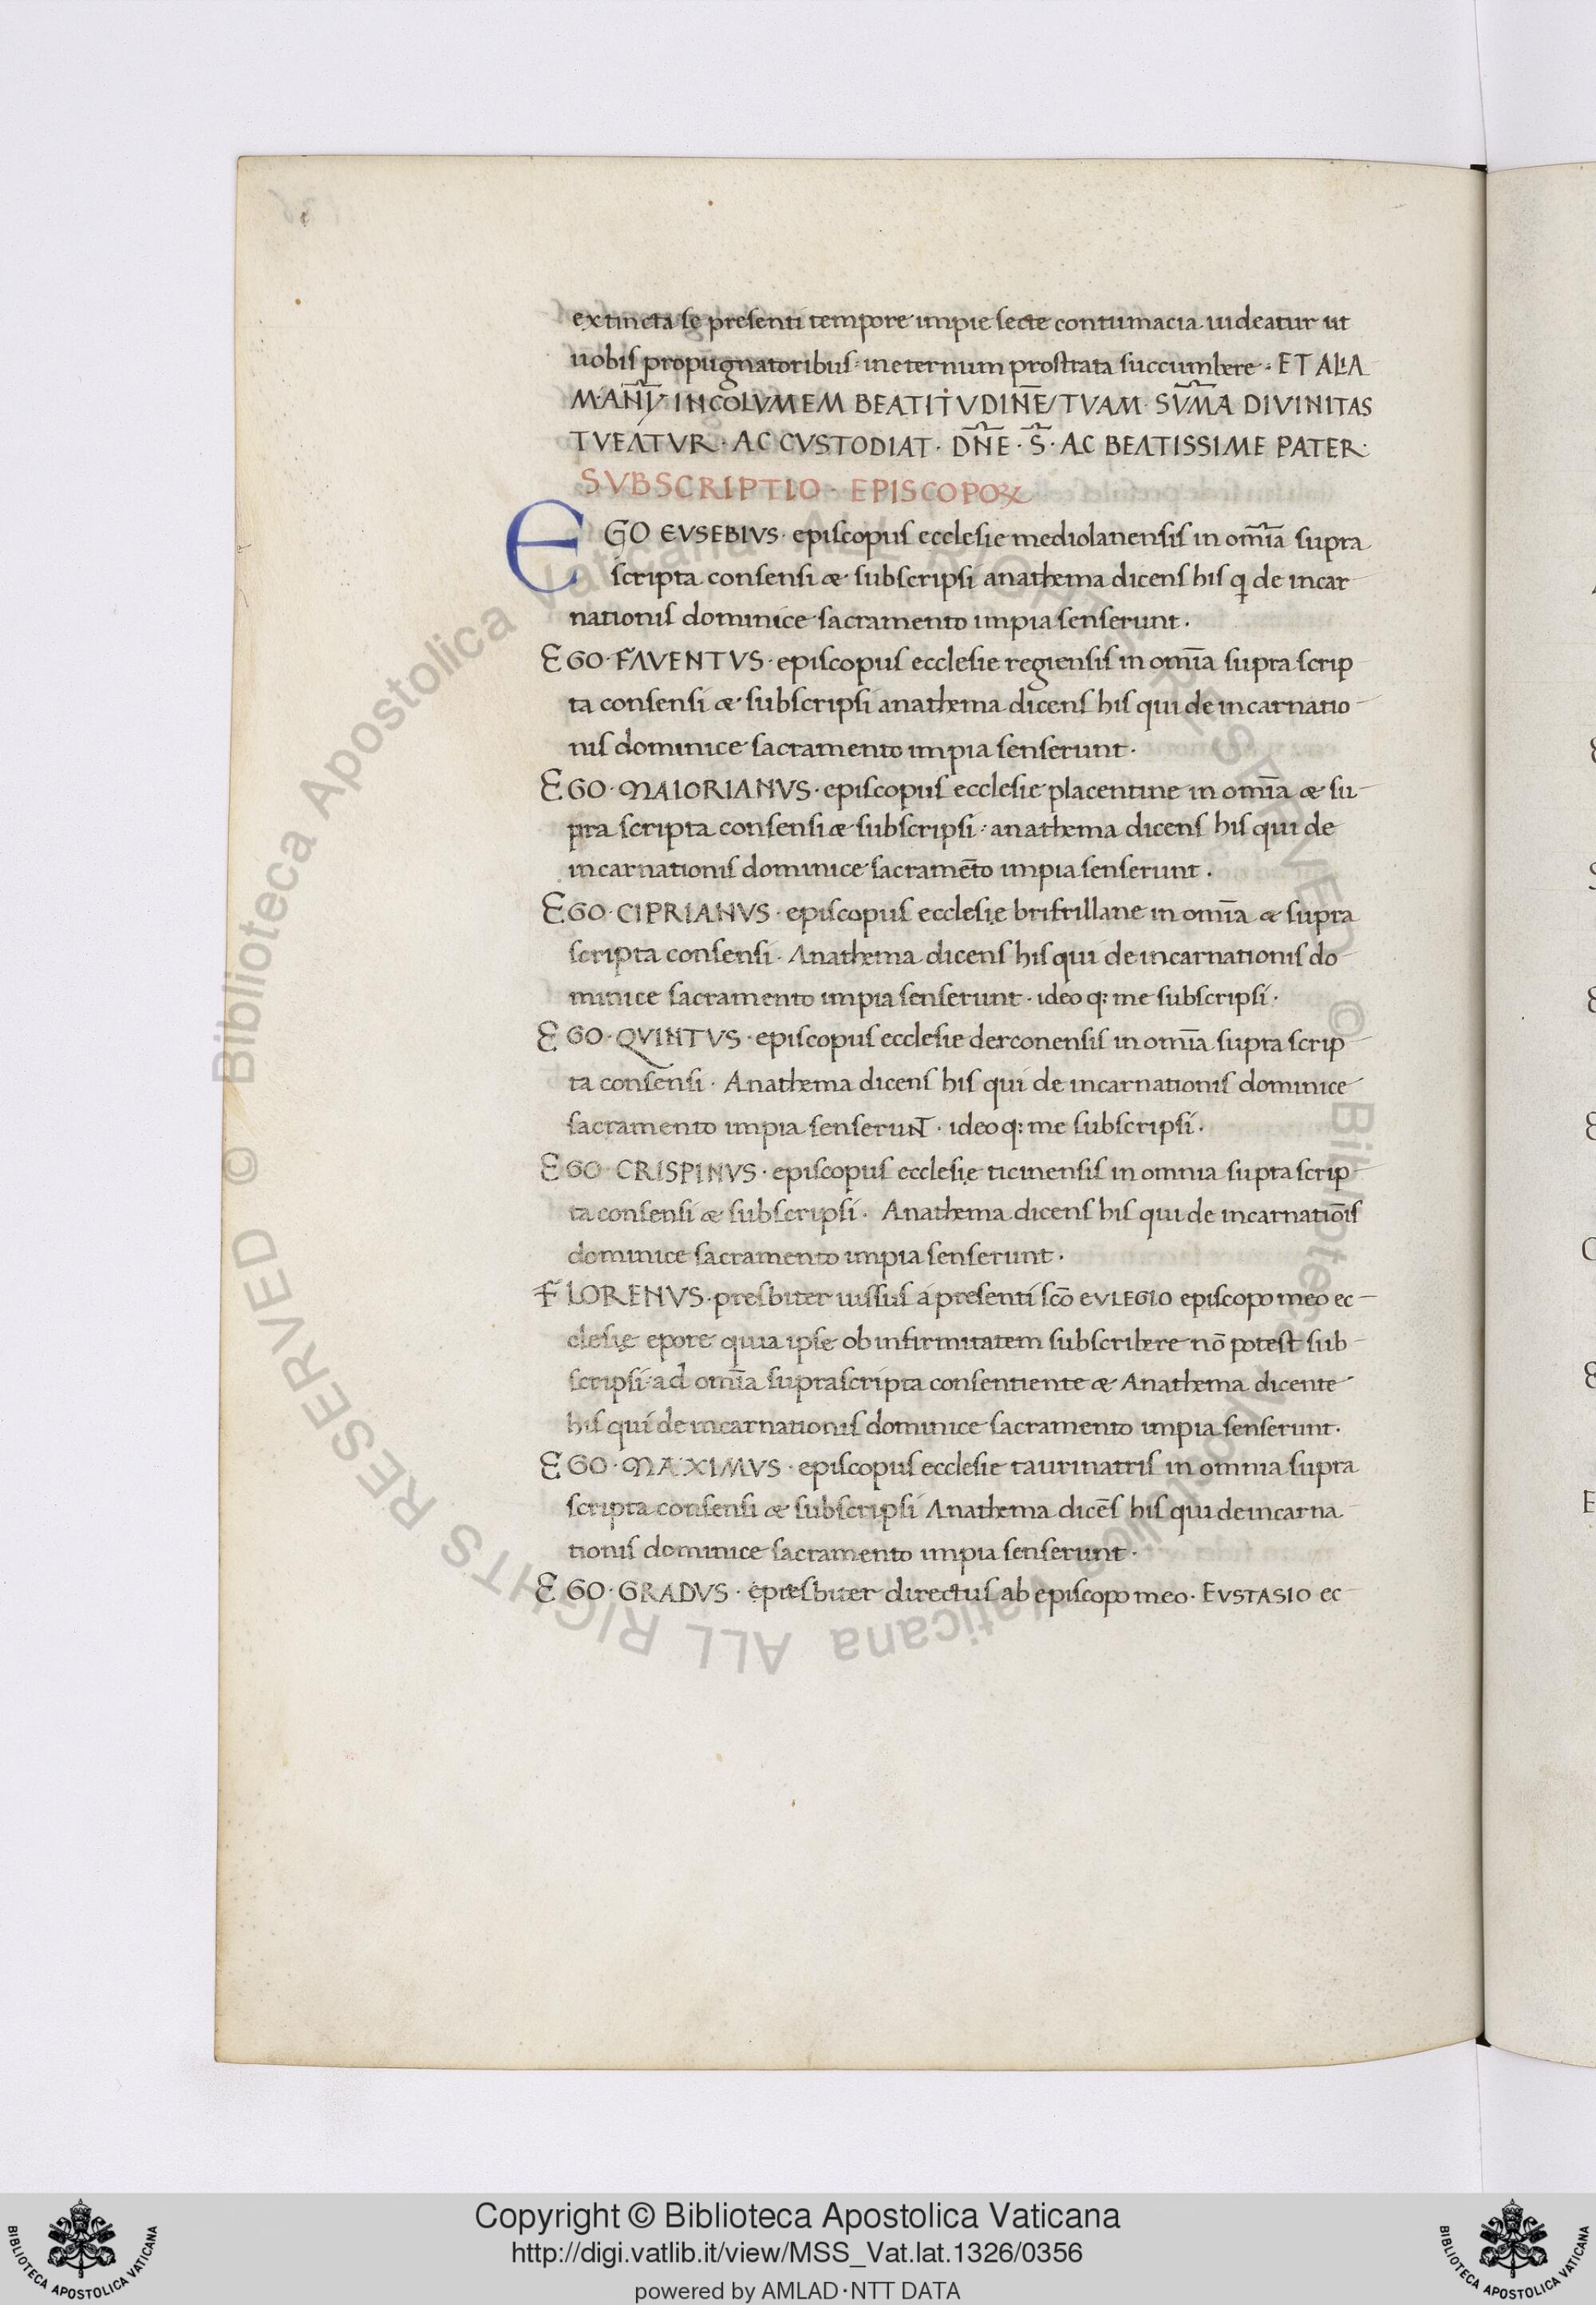 extincta se presenti tempore impie secte contumacia uideatur ut
uobis propugnatoribus· in eternum prostrata succumbere· ET ALIA
MAÑV· INCOLVMEM BEATITVDINẼ TVAM· SVM̃A DIVINITAS
TVEATVR· AC CVSTODIAT· DÑE· S̃· AC BEATISSIME PATER·
SVBSCRIPTIO· EPISCOPOꝜ
EGO EVSEBIVS· episcopus ecclesie mediolanensis in om̄ia supra
scripta consensi & subscripsi anathema dicens his ꝗ de incar
nationis dominice sacramento impia senserunt·
EGO· FAVENTVS· episcopus ecclesie regiensis in om̄ia supra scrip
ta consensi & subscripsi anathema dicens his qui de incarnatio
nis dominice sacramento impia senserunt·
EGO· MAIORIANVS· episcopus ecclesie placentine in om̄ia & su-
pra scripta consensi & subscripsi· anathema dicens his qui de
incarnationis dominice sacramēto impia senserunt·
EGO· CIPRIANVS· episcopus ecclesię brixillane in om̄ia & supra
scripta consensi· Anathema dicens his qui de incarnationis do
minice sacramento impia senserunt· ideo q: me subscripsi·
EGO· QVINTVS· episcopus ecclesie derconensis in om̄ia supra scrip
ta consensi· Anathema dicens his qui de incarnationis dominice
sacramento impia senseruNT· ideo q: me subscripsi·
EGO CRISPINVS· episcopus ecclesię ticinensis in omnia supra scrip
ta consensi & subscripsi· Anathema dicens his qui de incarnatiōis
dominice sacramento impia senserunt·
FLORENVS· presbiter iussus a presenti scō EVLEGIO episcopo meo ec
clesię epore quia ipse ob infirmitatem subscribere nō potest sub
scripsi· ad om̄ia suprascripta consentiente & Anathema dicente
his qui de incarnationis dominice sacramento impia senserunt·
EGO· MAXIMVS· episcopus ecclesie taurinatris in omnia supra
scripta consensi & subscripsi Anathema dicēs his qui de incarna
tionis dominice sacramento impia senserunt·
EGO· GRADVS· epresbiter directus ab episcopo meo· EVSTASIO ec
© Biblioteca Apostolica Vaticana ALL RIGHTS RESERVED © Biblioteca Apostolica Vaticana ALL RIGHTS RESERVED
Copyright © Biblioteca Apostolica Vaticana
http://digi.vatlib.it/view/MSS_Vat.lat.1326/0356
powered by AMLAD·NTT DATA
BIBLIOTECA APOSTOLICA VATICANA
BIBLIOTECA APOSTOLICA VATICANA